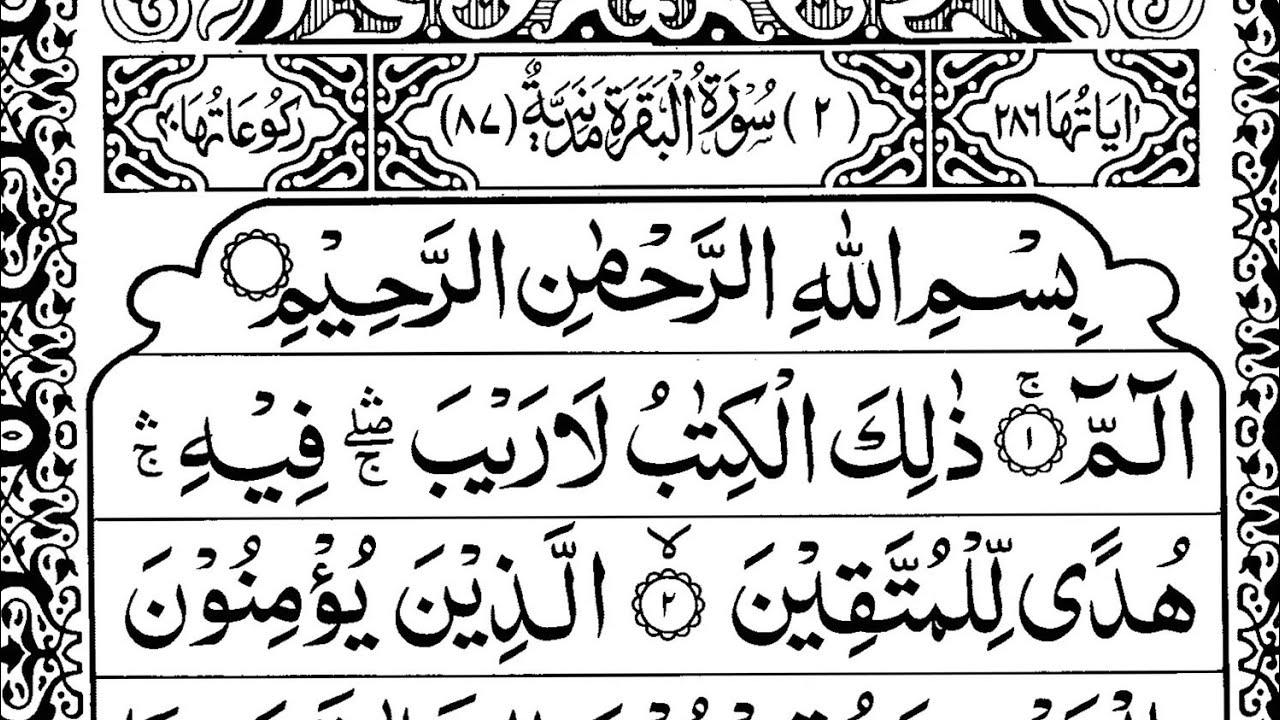 اٰيَاتُهَا ٢٨٦ (٢) سُوْرَةُ الْبَقَرَةِ مَدَنِيَّةٌ (٨٧) رُكُوْعَاتُهَا ٤٠
بِسْمِ اللّٰهِ الرَّحْمٰنِ الرَّحِيْمِ
الٓمّٓ ۚ ١ ذٰلِكَ الْكِتٰبُ لَا رَيْبَ ۛۖ ۚ فِيْهِ ۛ ۚ
هُدًى لِّلْمُتَّقِيْنَ ۙ ٢ الَّذِيْنَ يُؤْمِنُوْنَ